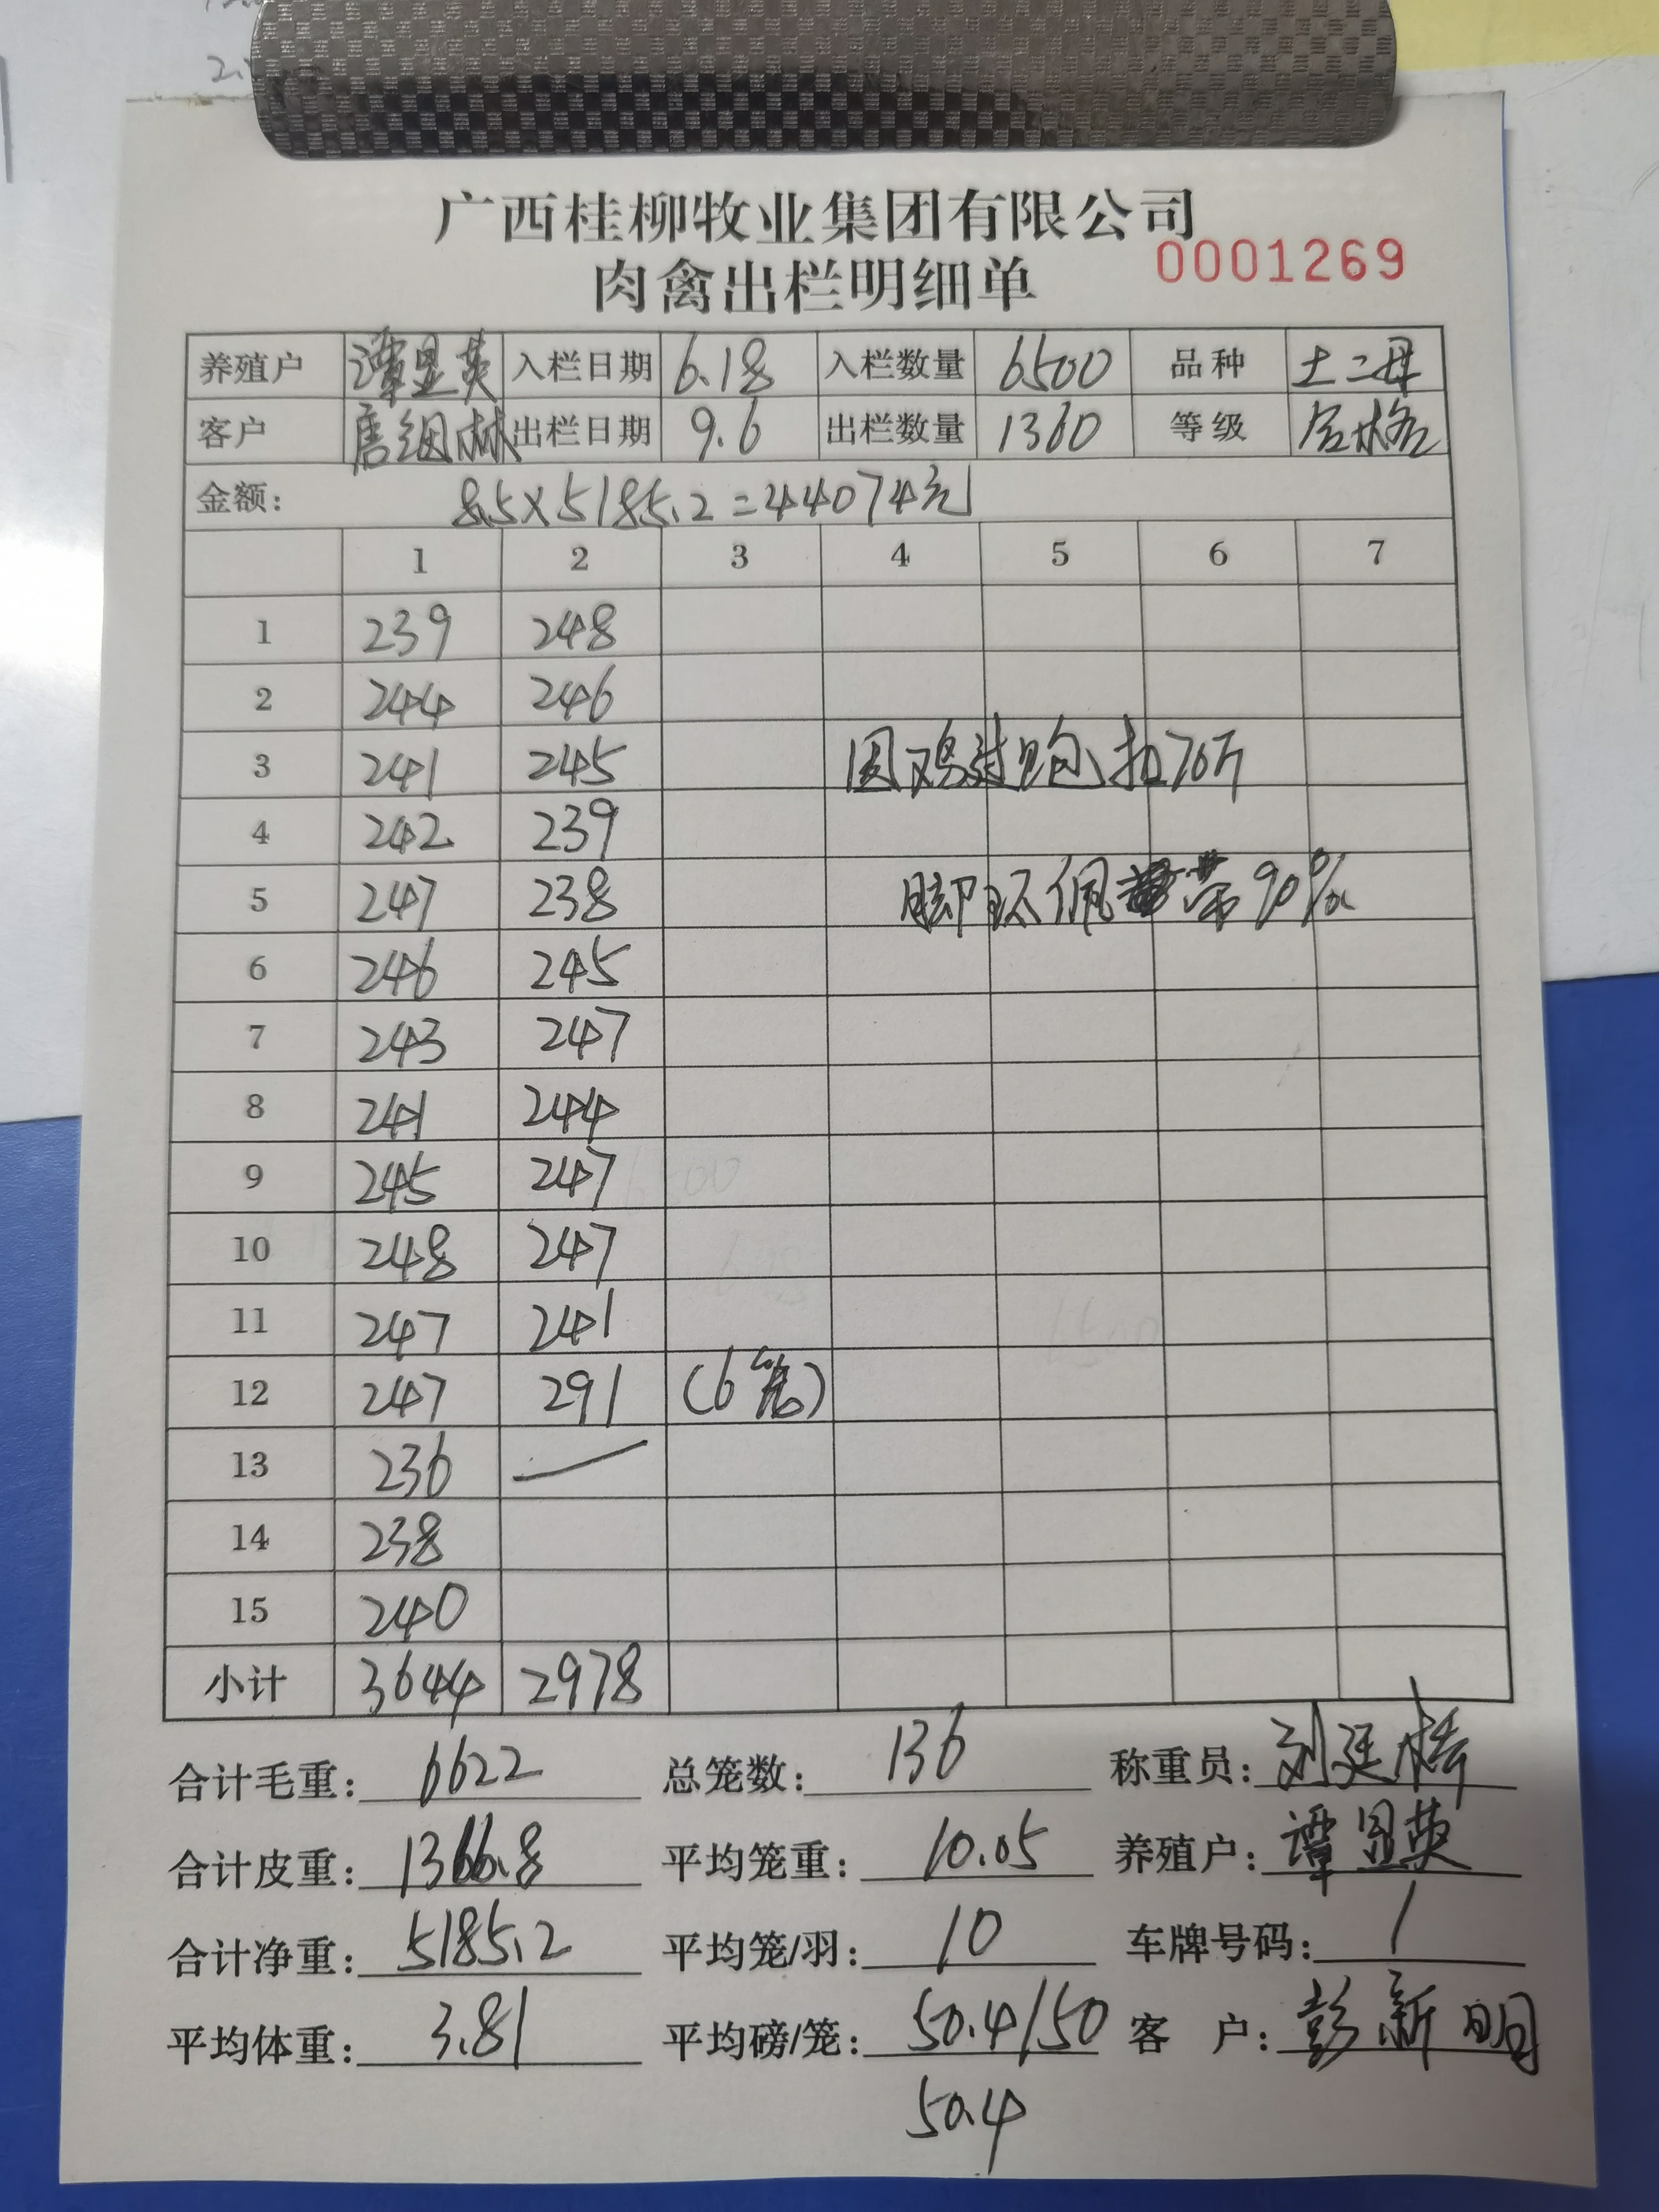 广西桂柳牧业集团有限公司
肉禽出栏明细单 0001269
养殖户 谭显英 入栏日期 6.18 入栏数量 6500 品种 土二母
客户 唐细林 出栏日期 9.6 出栏数量 1360 等级 合格
金额: 8.5×5185.2=44074元
1 2 3 4 5 6 7
1 239 248
2 244 246
3 241 245 因鸡过饱扣70斤
4 242 239
5 247 238 脚环佩带90%
6 246 245
7 243 247
8 241 244
9 245 247
10 248 247
11 247 241
12 247 291 (6笼)
13 236 —
14 238
15 240
小计 3644 2978
合计毛重: 6622 总笼数: 136 称重员: 刘廷
合计皮重: 1366.8 平均笼重: 10.05 养殖户: 谭显英
合计净重: 5185.2 平均笼/羽: 10 车牌号码: /
平均体重: 3.81 平均磅/笼: 50.4/50 客户: 彭新明
50.4